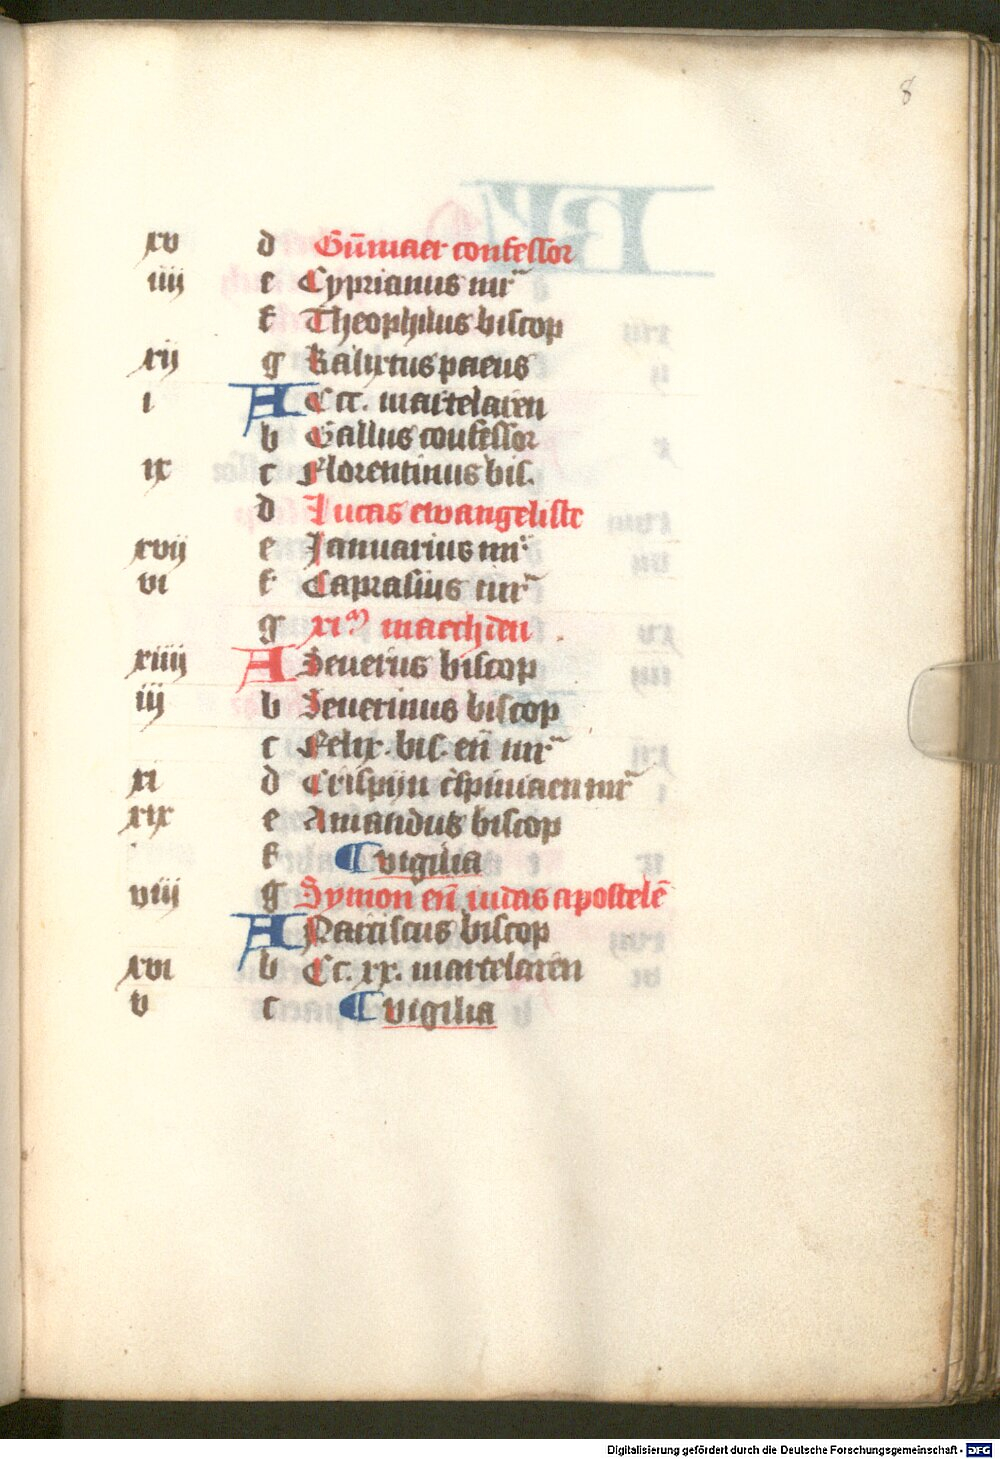 8
xv d Gūmaer confessor
iiii e Cyprianus mr̄
f Theophilus biscop
xij g Kalixtus paeus
i A CCC. martelarēn
b Gallus confessor
ix c Florentinus bis.
d Lucas ewangeliste
xvij e Januarius mr̄
vi f Caprasius mr̄
g xi m maechden
xiiij A Seuerus biscop
iij b Seuerinus biscop
c Felix. bis. en̄ mr̄
xi d Crispijn c̄spiniaen mr̄
xix e Amandus biscop
f vigilia
viij g Symon en̄ iudas apostelē
A Narciscus biscop
xvi b CC. xx. martelarēn
v c vigilia
Digitalisierung gefördert durch die Deutsche Forschungsgemeinschaft - DFG